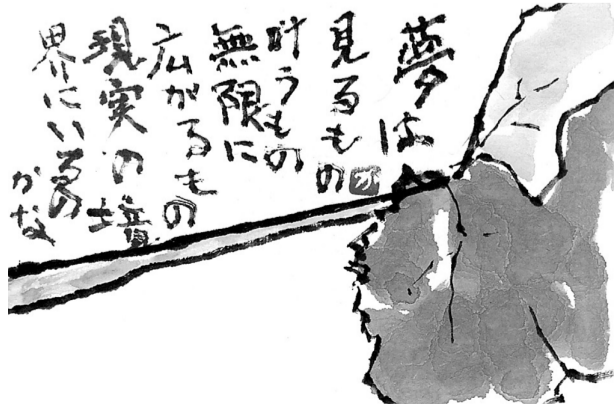 夢は
見るもの
叶うもの
無限に
広がるもの
現実の境
界にいるの
かな